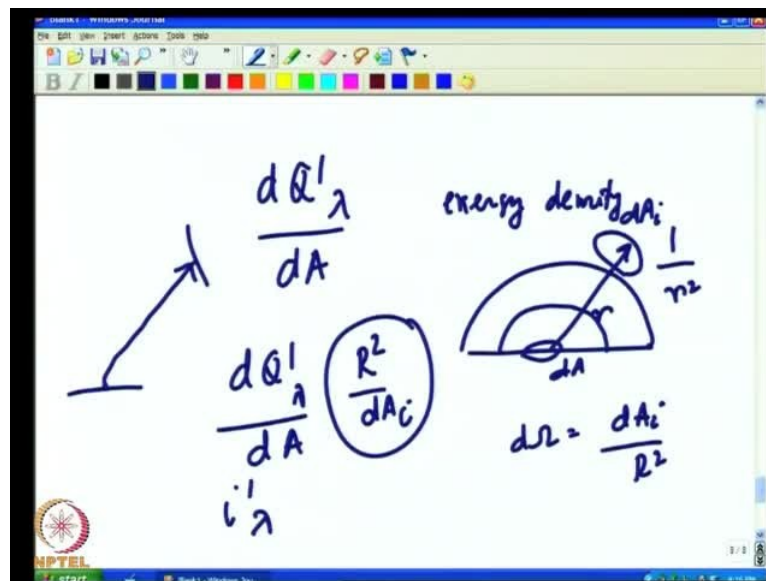 Blank1 - Windows Journal
File Edit View Insert Actions Tools Help
B I
dQ'λ
dA
energy density
dAi
1
r²
r
dA
dQ'λ R²
dA dAi
i'λ
dΩ = dAi
R²
NPTEL
3/3
start
Blank1 - Windows Jou...